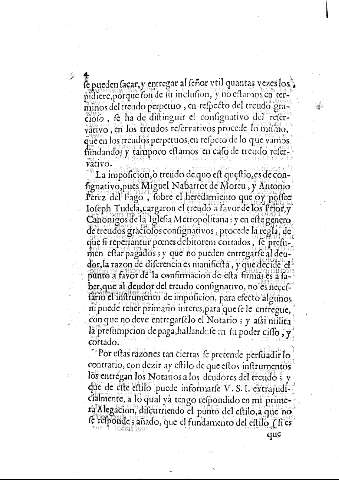 4
se pueden sacar, y entregar al señor vtil quantas vezes los
pidiere, porque son de su inclusion, y no estamos en ter-
minos del treudo perpetuo, en respecto del treudo gra-
cioso, se ha de distinguir el consignativo del reser-
vativo, en los treudos reservativos procede lo mismo,
que en los treudos perpetuos, en respecto de lo que vamos
fundando; y tampoco estamos en caso de treudo reser-
vativo.
La imposicion, ò treudo de quo est quæstio, es de con-
signativo, pues Miguel Nabarret de Moreu, y Antonio
Perez del Fago, sobre el heredamiento que oy possee
Ioseph Tudela, cargaron el treudo à favor de los Prior, y
Canonigos de la Iglesia Metropolitana: y en este genero
de treudos graciosos consignativos, procede la regla, de
que si reperiantur penes debitorem cortados, se presu-
men estar pagados; y que no pueden entregarse al deu-
dor, la razon de diferencia es manifiesta, y que decide el
punto à favor de la confirmacion de esta firma: es à sa-
ber, que al deudor del treudo consignativo, no es neces-
sario el instrumento de imposicion, para efecto algunos
ni puede tener primario interes, para que se le entregue,
con que no deve entregarselo el Notario; y assi milita
la presumpcion de paga, hallandose en su poder cisso, y
cortado.
Por estas razones tan ciertas se pretende persuadir lo
contrario, con dezir ay estilo de que estos instrumentos
los entregan los Notarios à los deudores del treudo; y
que de este estilo puede informarse V. S. I. extrajudi-
cialmente, a lo qual ya tengo respondido en mi prime-
ra Alegacion, discurriendo el punto del estilo, a que no
se responde; añado, que el fundamento del estilo (si es
que